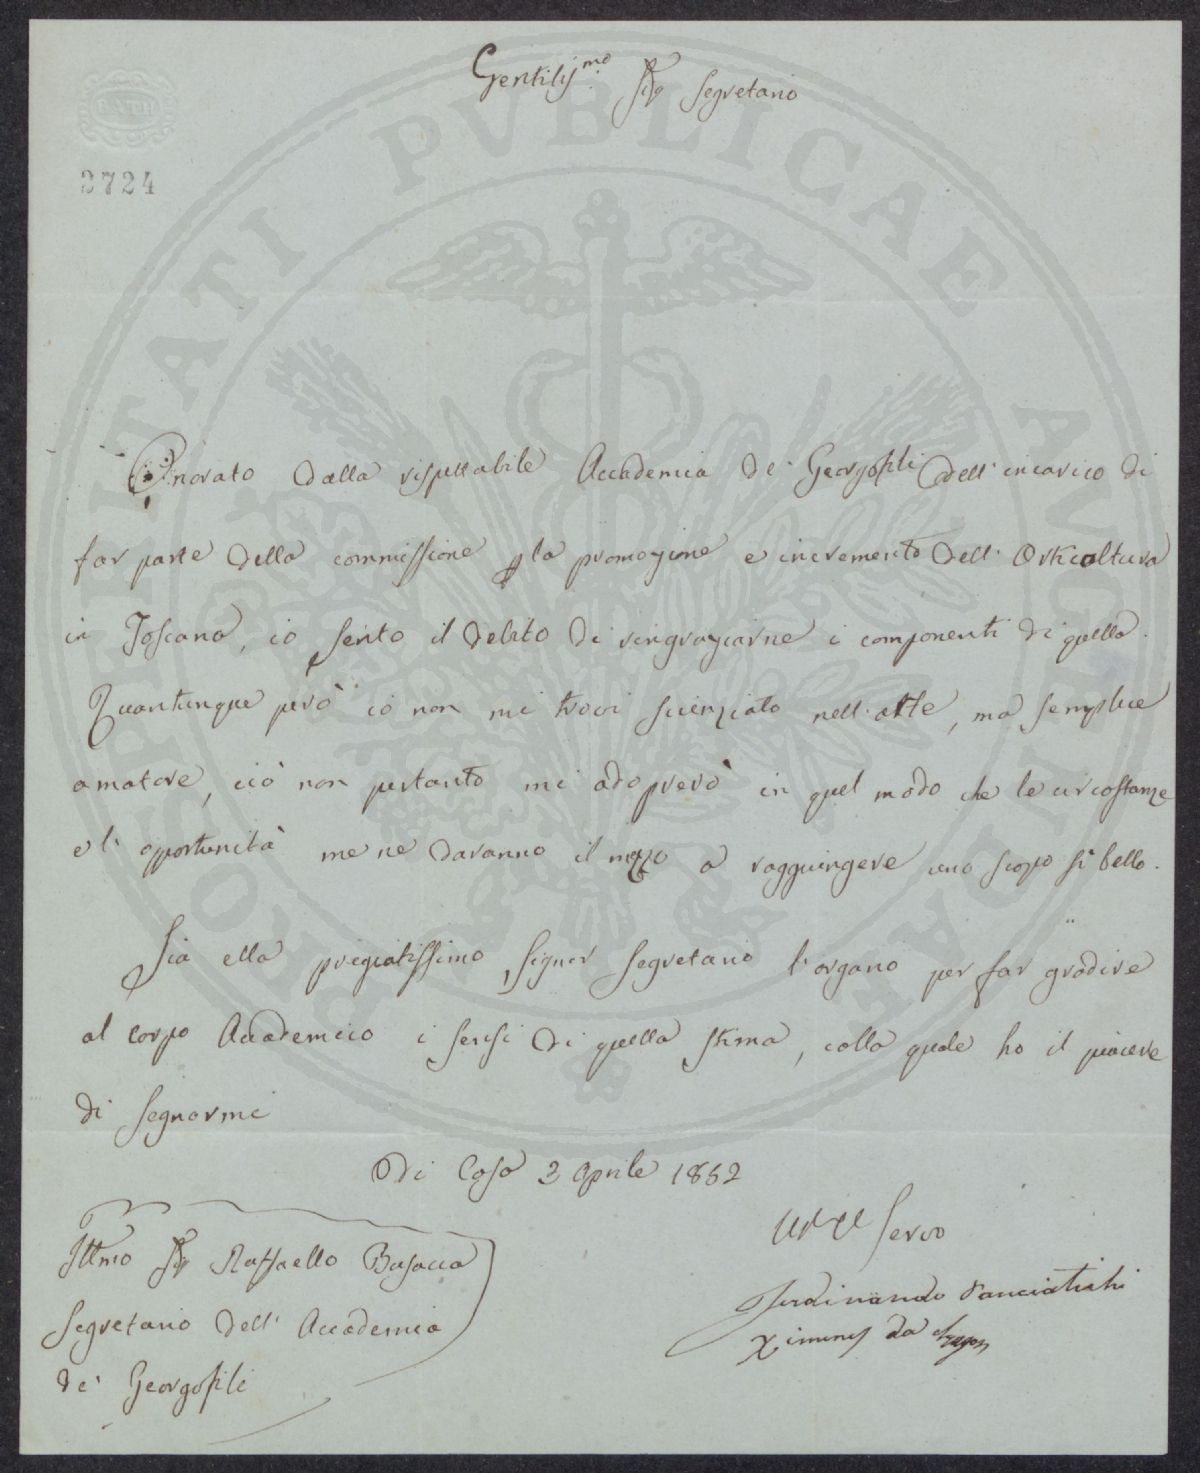 Gentiliss.mo Sig.r Segretario
BATH
2724
Onorato dalla rispettabile Accademia de' Georgofili dell'incarico di
far parte della commissione p la promozione e incremento dell'Orticoltura
in Toscana, io sento il debito di ringraziarne i componenti di quella.
Quantunque però io non mi trovi scienziato nell'arte, ma semplice
amatore, ciò non pertanto mi adoprerò in quel modo che le circostanze
e l'opportunità me ne daranno il mezzo a raggiungere uno scopo sì bello.
Sia ella pregiatissimo Signor Segretario l'organo per far gradire
al corpo Accademico i sensi di quella stima, colla quale ho il piacere
di segnarmi
Di Casa 2 Aprile 1852
Servo
Ferdinando Panciatichi
Ximenes da
Illmo Sig Raffaello Busacca
Segretario dell'Accademia
de' Georgofili
PROSPERITATI PVBLICAE AVGENDAE